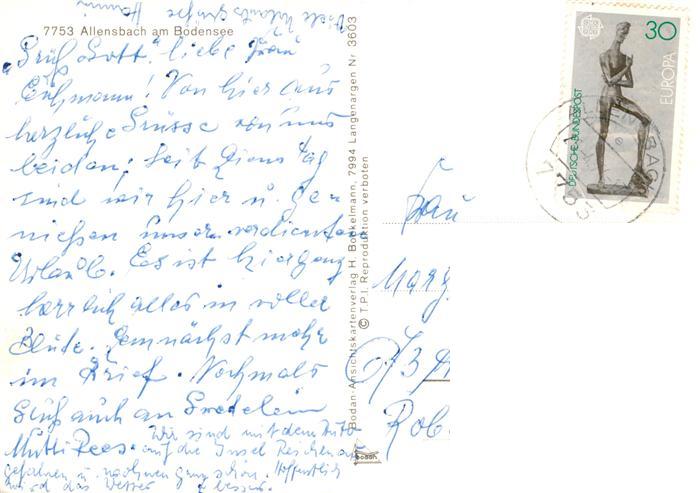 Viele Urlaubsgrüße
7753 Allensbach am Bodensee
„Grüß Gott" liebe Frau
! Von hier aus
herzliche Grüsse von uns
beiden; Seit Diens tag
sind wir hier u. ge-
niesen unseren verdienten
Urlaub. Es ist hier ganz
herrlich alles in voller
Blüte. Demnächst mehr
im Brief. Nochmals
Gruß auch an
Mutti Rees. Wir sind mit dem Auto
auf die Insel Reichenau
gefahren u. ganz schön. Hoffentlich
wird das Wetter besser.
Bodan-Ansichtskartenverlag H. Bockelmann, 7994 Langenargen Nr 3603
© T.P.I. Reproduction verboten
bodan
30
EUROPA
DEUTSCHE BUNDESPOST
Frau
Marg
Rob